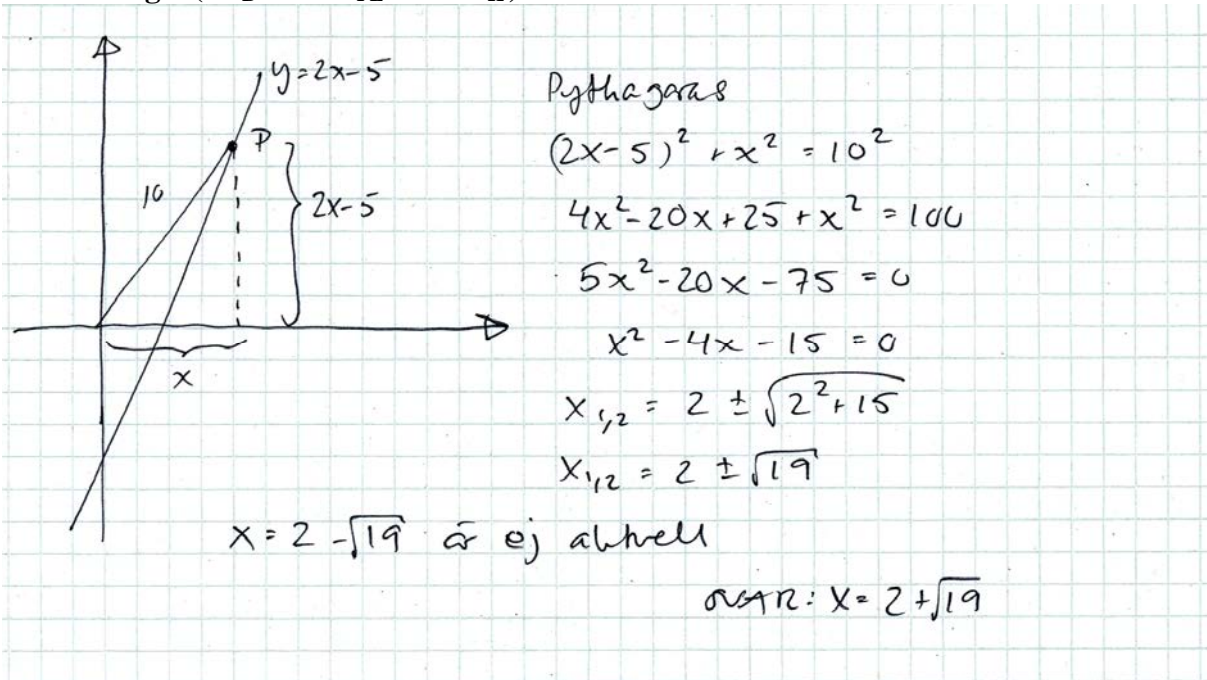 y=2x-5
P
10
2x-5
x
Pythagoras
(2x-5)² + x² = 10²
4x²-20x+25+x² = 100
5x²-20x-75 = 0
x²-4x-15 = 0
x₁,₂ = 2 ± √(2²+15)
x₁,₂ = 2 ± √19
x = 2 - √19 är ej aktuell
SVAR: x = 2+√19